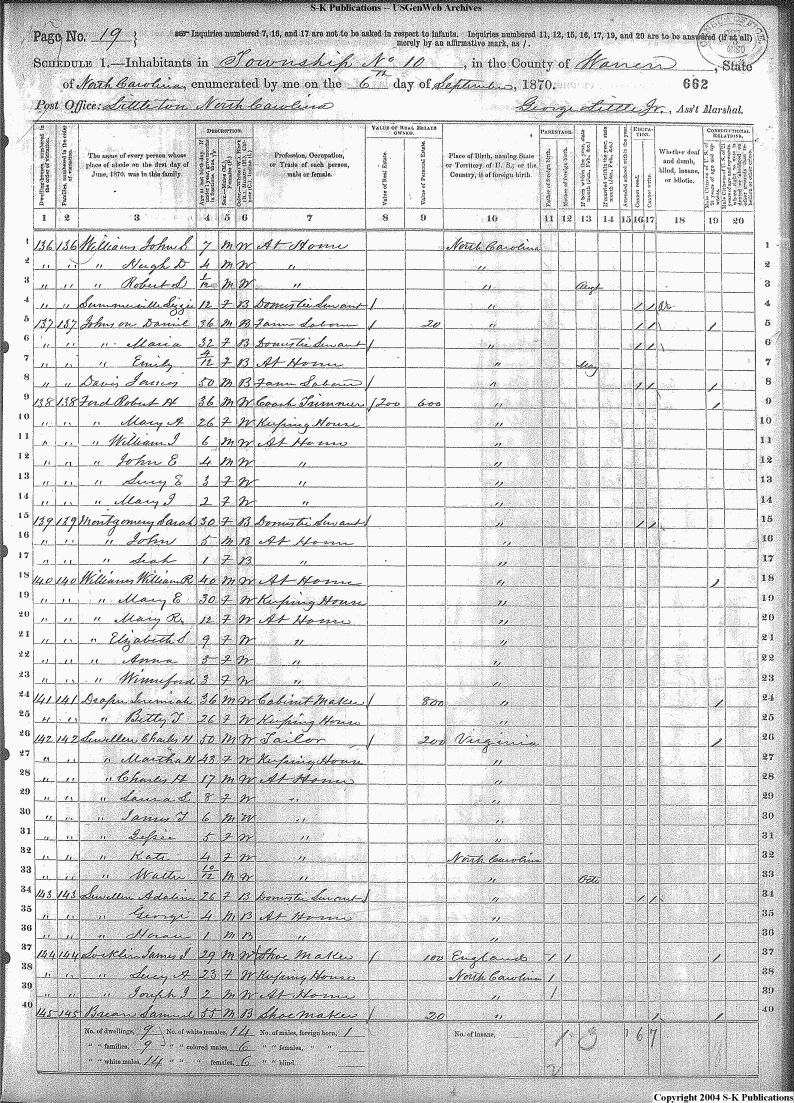 S-K Publications -- USGenWeb Archives
Page No. 19 } Inquiries numbered 7, 16, and 17 are not to be asked in respect to infants. Inquiries numbered 11, 12, 15, 16, 17, 19, and 20 are to be answered (if at all)
merely by an affirmative mark, as /.
SCHEDULE 1.—Inhabitants in Township No 10, in the County of Warren, State
of North Carolina, enumerated by me on the 6th day of September, 1870. 662
Post Office: Littleton North Carolina George Little Jr., Ass't Marshal.
DESCRIPTION. VALUE OF REAL ESTATE OWNED. PARENTAGE. EDUCATION. CONSTITUTIONAL RELATIONS.
The name of every person whose place of abode on the first day of June, 1870, was in this family. Profession, Occupation, or Trade of each person, male or female. Value of Real Estate. Value of Personal Estate. Place of Birth, naming State or Territory of U. S.; or the Country, if of foreign birth. Whether deaf and dumb, blind, insane, or idiotic.
1 2 3 4 5 6 7 8 9 10 11 12 13 14 15 16 17 18 19 20
1 136 136 Williams John S 7 M W At Home North Carolina 1
2 " " " Hugh D 4 M W " " 2
3 " " " Robert L 1/12 M W " " 3
4 " " Summerville Lizzie 12 F B Domestic Servant " / / 4
5 137 137 Johnson Daniel 36 M B Farm Laborer 20 " / / / 5
6 " " " Maria 32 F B Domestic Servant " / / 6
7 " " " Emily 4/12 F B At Home " May 7
8 " " Davis James 50 M B Farm Laborer " / / / 8
9 138 138 Ford Robert H 36 M W Coach Trimmer 1200 600 " / 9
10 " " " Mary A 26 F W Keeping House " 10
11 " " " William J 6 M W At Home " 11
12 " " " John E 4 M W " " 12
13 " " " Lucy E 3 F W " " 13
14 " " " Mary J 2 F W " " 14
15 139 139 Montgomery Sarah 30 F B Domestic Servant " / / 15
16 " " " John 5 M B At Home " 16
17 " " " Leah 1 F B " " 17
18 140 140 Williams William R 40 M W At Home " / 18
19 " " " Mary E 30 F W Keeping House " 19
20 " " " Mary R 12 F W At Home " 20
21 " " " Elizabeth S 9 F W " " 21
22 " " " Anna 5 F W " " 22
23 " " " Winneford 3 F W " " 23
24 141 141 Draper Jeremiah 36 M W Cabinet Maker 800 " / 24
25 " " " Betty T 26 F W Keeping House " 25
26 142 142 Lewellen Charles H 50 M W Tailor 200 Virginia / 26
27 " " " Martha H 48 F W Keeping House " 27
28 " " " Charles H 17 M W At Home " 28
29 " " " Laura S 8 F W " " 29
30 " " " James T 6 M W " " 30
31 " " " 5 F W " " 31
32 " " " Kate 4 F W " North Carolina 32
33 " " " Walter 10/12 M W " " Octo 33
34 143 143 Lewellen Adaline 26 F B Domestic Servant " / / 34
35 " " " George 4 M B At Home " 35
36 " " " Horace 1 M B " " 36
37 144 144 Locklin James J 29 M W Shoe Maker 100 England / / / 37
38 " " " Lucy A 23 F W Keeping House North Carolina / 38
39 " " " Joseph J 2 M W At Home " / 39
40 145 145 Samuel 55 M B Shoe Maker 20 " / / 40
No. of dwellings, 9 No. of white females, 14 No. of males, foreign born, 1 No. of insane,
" " families, 9 " " colored males, 6 " " females, " "
" " white males, 14 " " " females, 6 " " blind
Copyright 2004 S-K Publications